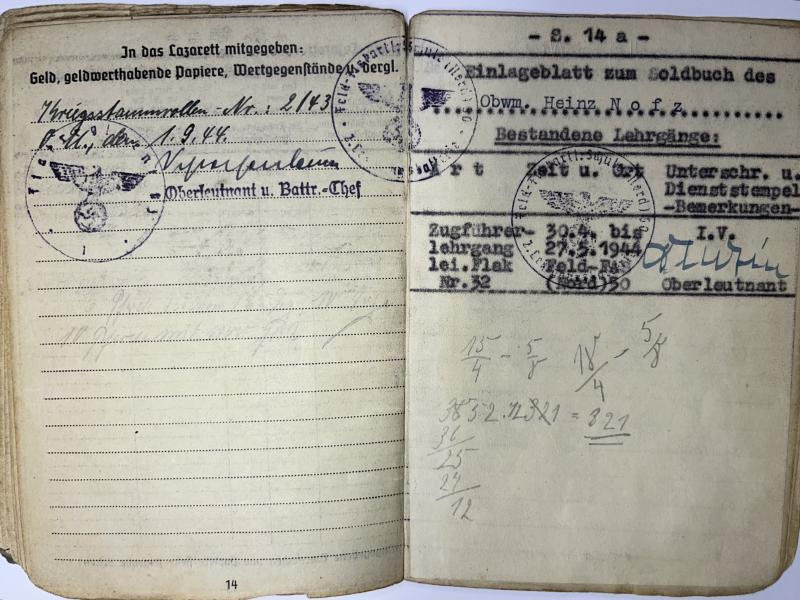 In das Lazarett mitgegeben:
Geld, geldwerthabende Papiere, Wertgegenstände u. dergl.
Kriegsstammrollen-Nr.: 2/43
O. U., den 1.9.44.
Oberleutnant u. Battr.-Chef
14
- S. 14 a -
Einlageblatt zum Soldbuch des
Obwm. Heinz Nofz
Bestandene Lehrgänge:
Art Zeit u. Ort Unterschr. u.
Dienststempel
-Bemerkungen-
Zugführer- 30.4. bis I.V.
lehrgang 27.5.1944
lei.Flak Feld-
Nr.32 (Nord)50 Oberleutnant
15/4 - 5/8 18/4 - 5/8
3852 : 12 = 321
36
25
24
12